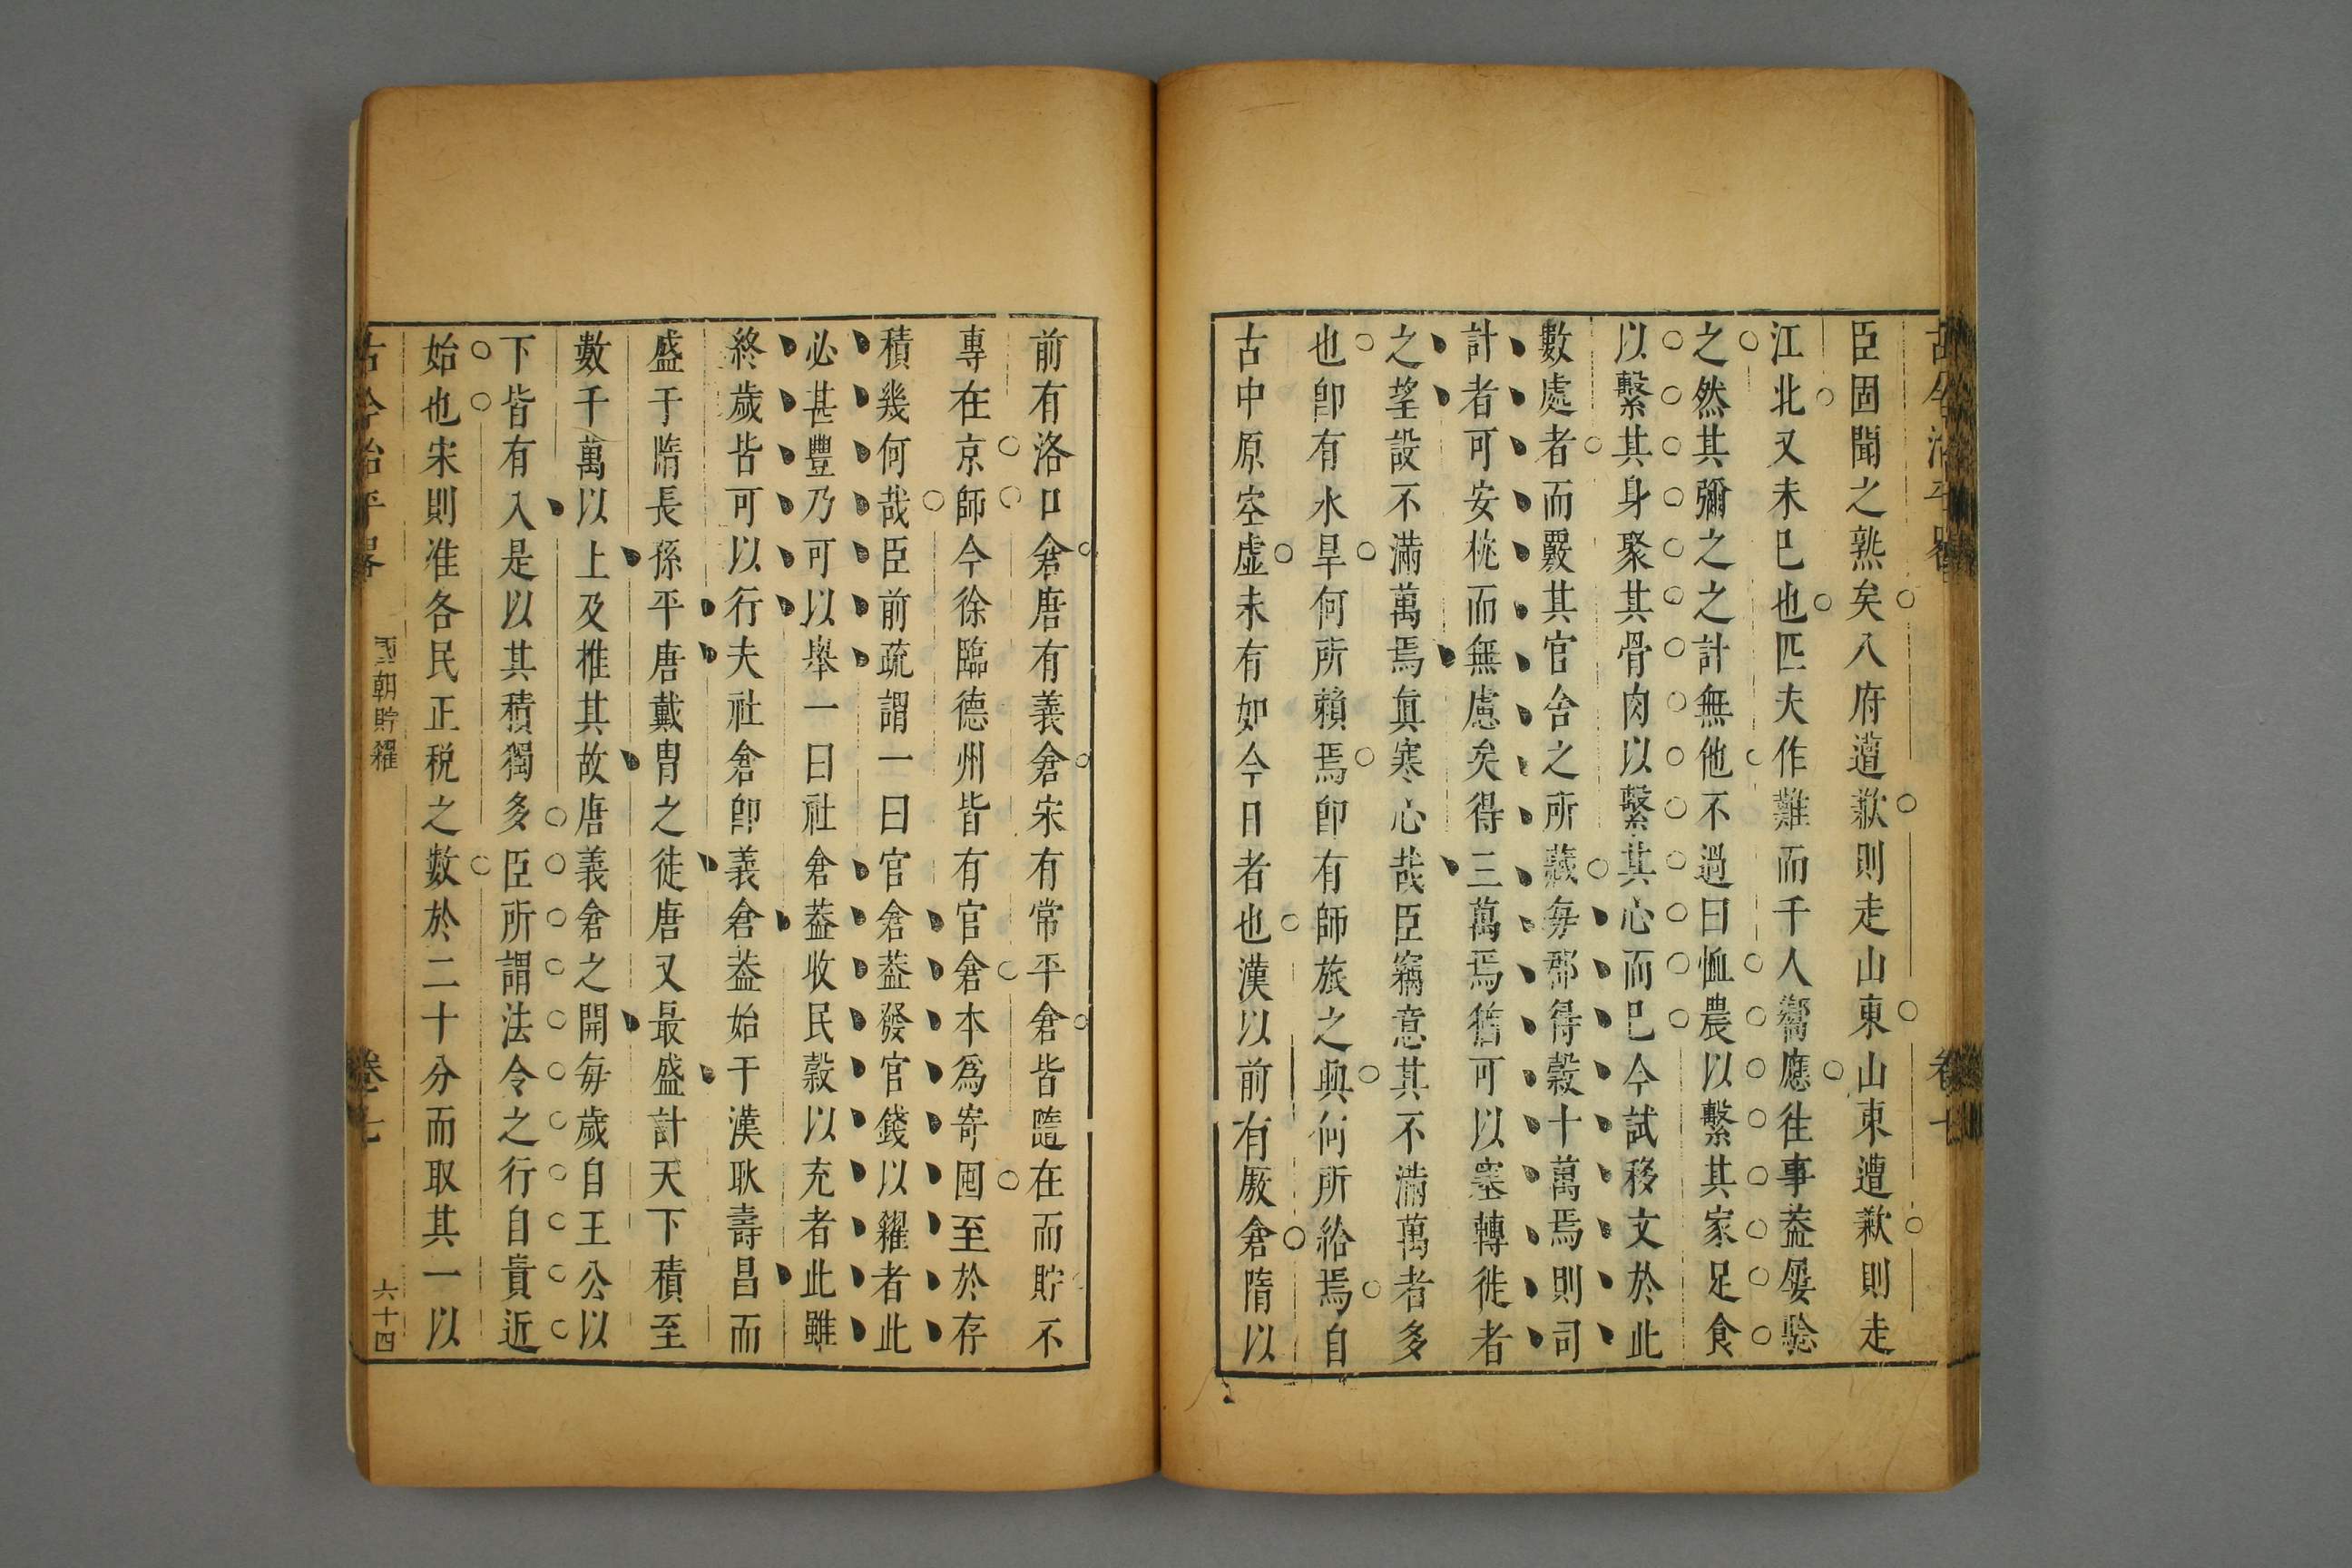 臣固聞之熟矣入府遭歉則走山東山東遭歉則走
江北又未已也匹夫作難而千人嚮應徃事葢屢驗
之然其彌之之計無他不過曰恤農以繫其家足食
以繫其身聚其骨肉以繫其心而已今試移文於此
數處者而覈其官舍之所藏每郡得榖十萬焉則司
計者可安枕而無慮矣得三萬焉猶可以塞轉徙者
之望設不滿萬焉眞寒心哉臣竊意其不滿萬者多
也卽有水旱何所賴焉卽有師旅之興何所給焉自
古中原空虛未有如今日者也漢以前有厫倉隋以
前有洛口倉唐有義倉宋有常平倉皆隨在而貯不
專在京師今徐臨德州皆有官倉本爲寄囤至於存
積幾何哉臣前疏謂一曰官倉葢發官錢以糴者此
必甚豐乃可以舉一曰社倉葢收民榖以充者此雖
終歲皆可以行夫社倉卽義倉葢始于漢耿壽昌而
盛于隋長孫平唐戴冑之徒唐又最盛計天下積至
數千萬以上及推其故唐義倉之開每歲自王公以
下皆有入是以其積獨多臣所謂法令之行自貴近
始也宋則准各民正税之數於二十分而取其一以
古今治平畧
國朝貯糴
卷七
六十四